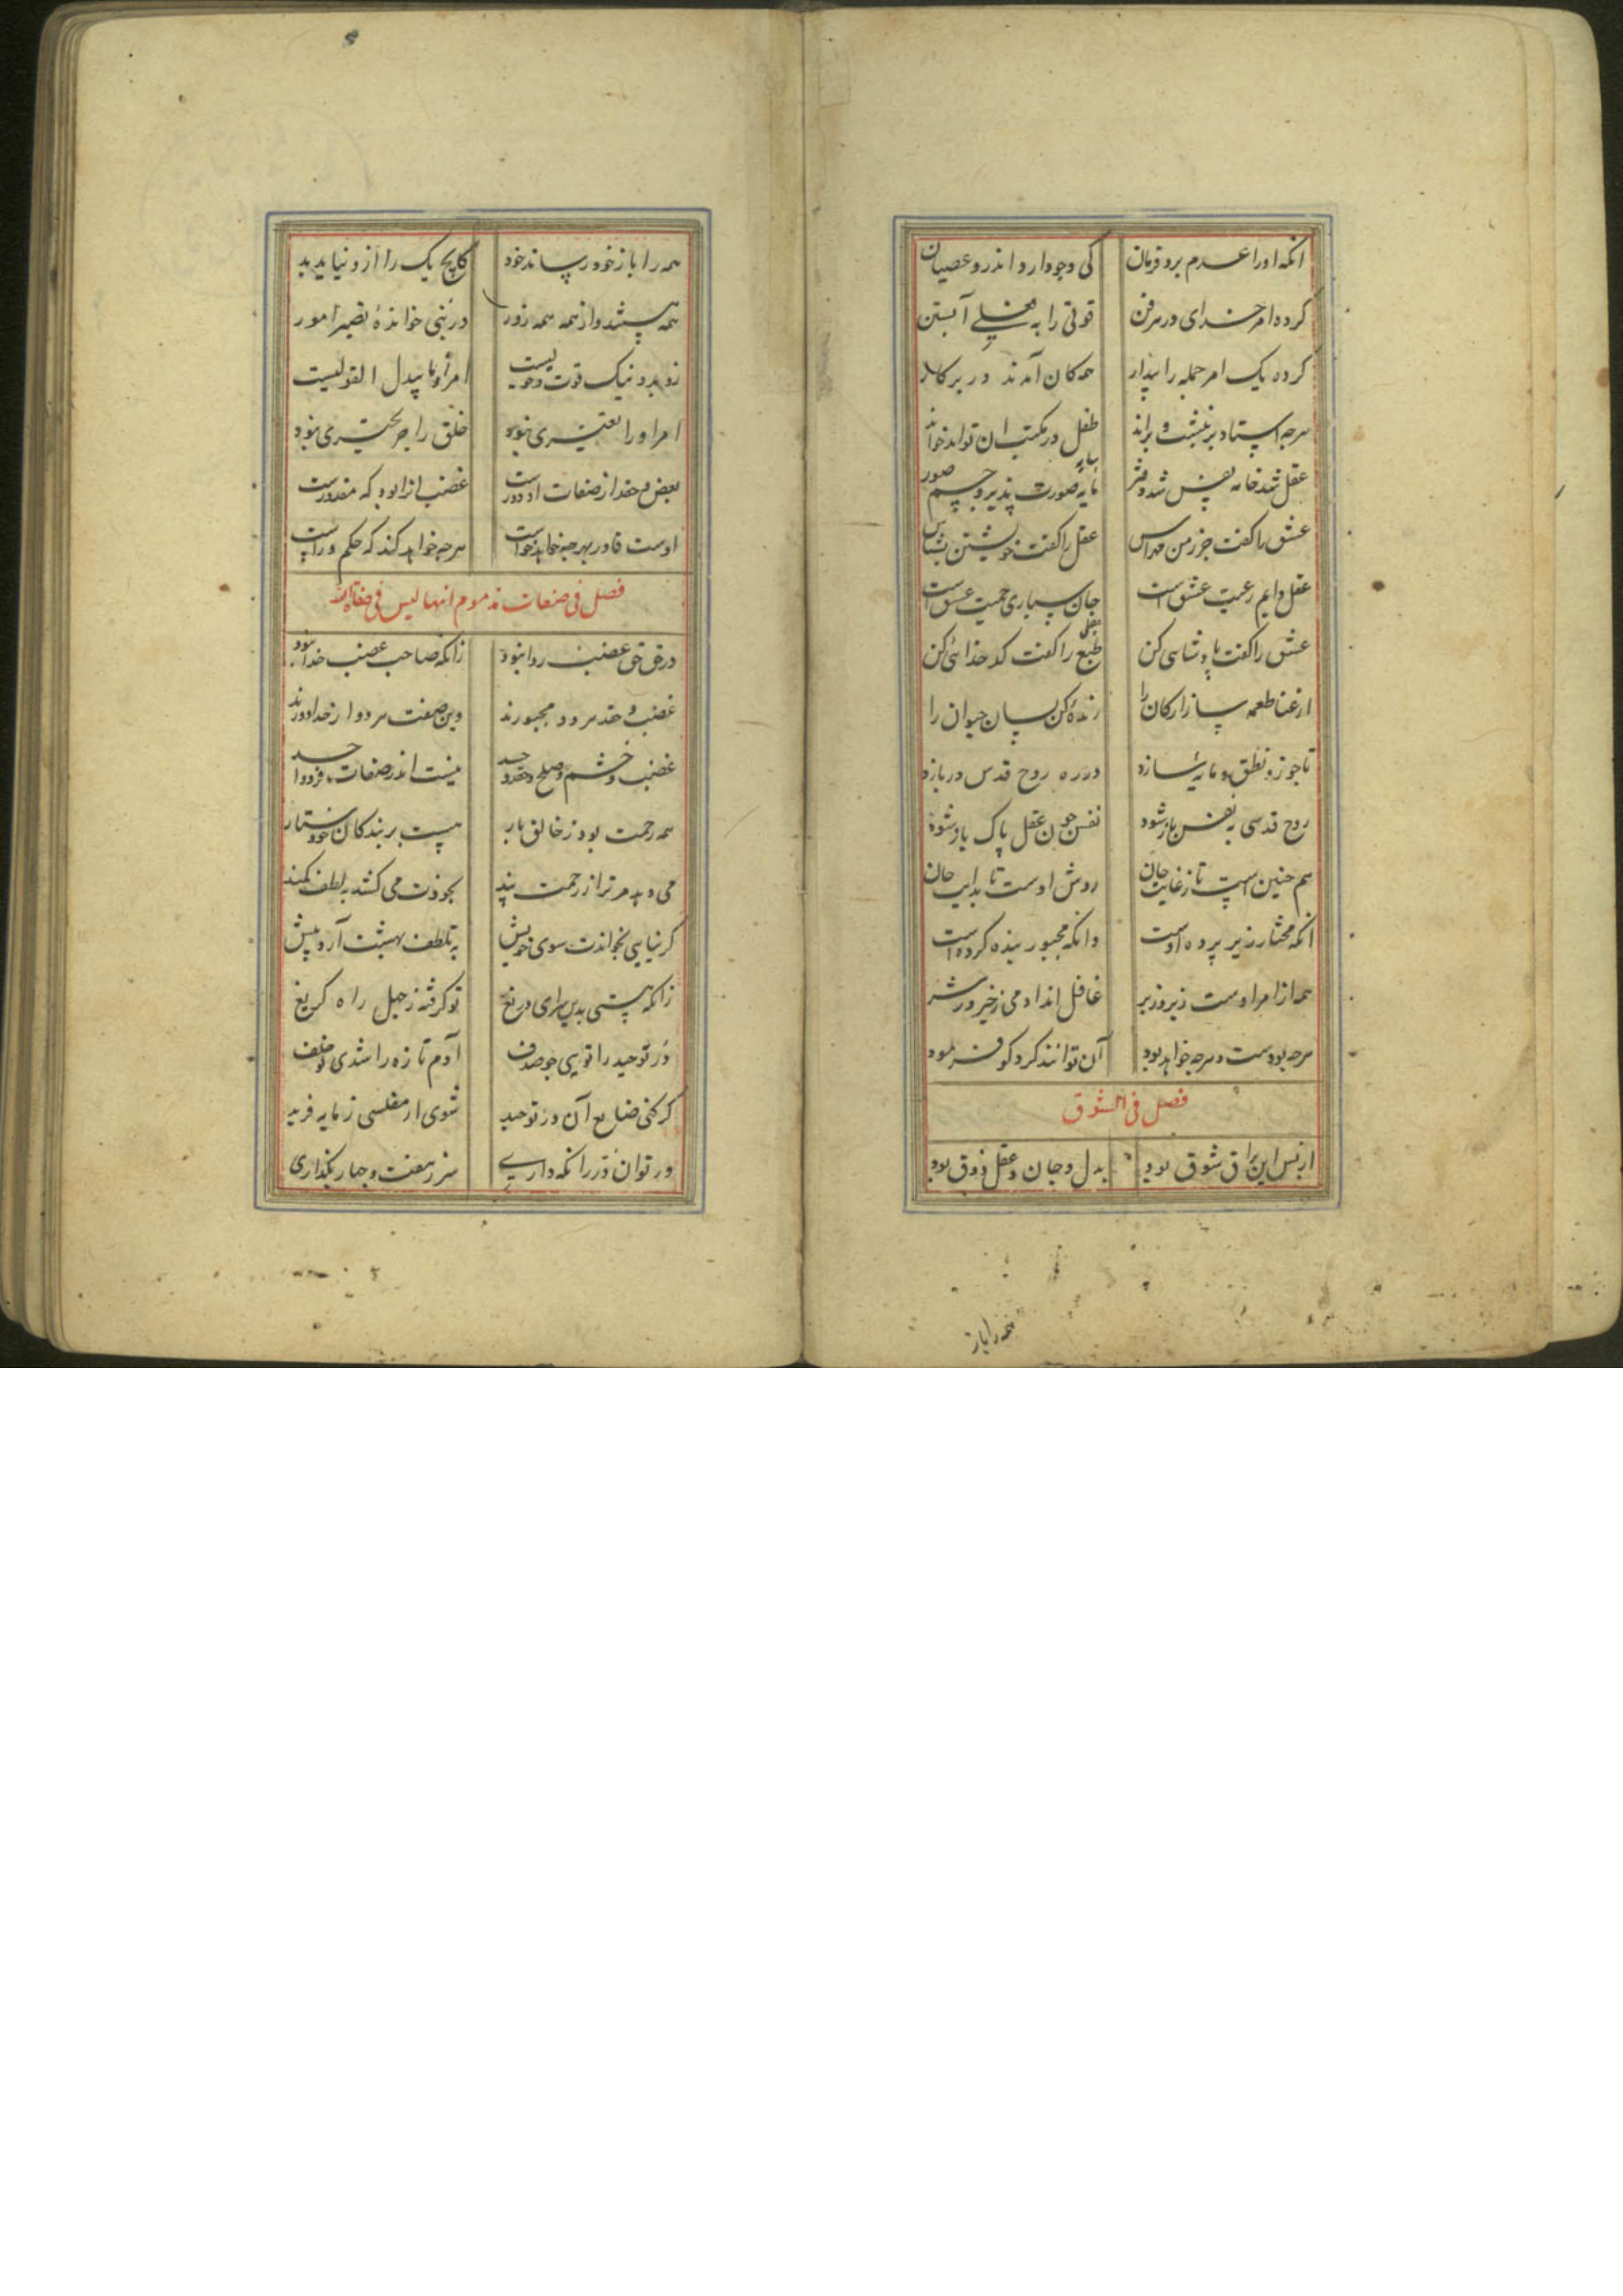 انکه اورا عدم برد فرمان کی وجود آرد اندرو عصیان
کرده امر خدای در هر فن قوتی را به فعلی آبستن
کرده یک امر جمله را بیدار همکان آمدند در بر کار
هرجه استاد برنبشت و براند طفل در مکتب ان تواند خواند
عقل شد خامه نفس شد دفتر مایه صورت پذیر و جسم صور
عشق را کفت جز زمن مهراس عقل را کفت خویشتن بشناس
عقل دایم رعیت عشق است جان سپاری حمیت عشق است
عشق را کفت پادشاهی کن طبع را کفت کدخدائی کن
از عنا طعمه ساز ارکان را زنده کن بسان حیوان را
تا جو زو نطق مایه سازد در ره روح قدس دربازد
روح قدسی به نفس بازشود نفس جون عقل پاک بازشود
هم جنین است تا زغایت جان روش اوست تا بدایت جان
انکه مختار زیر پرده اوست وانکه مجبور بنده کرده است
همه از امر اوست زیر و زبر غافل اند ادمی زخیر و زشر
هرجه بودست و هرجه خواهد بود آن توانند کرد کو فرمود
فصل فی الشوق
از پس این براق شوق بود بدل و جان و عقل ذوق بود
همه را باز
همه را باز خود رساند خود کانج یک را ازو نیاید بد
همه هستند و از همه همه زور در نبی خوانده تصیر امور
زو بد و نیک قوت و حول نیست امر او ما یبدل القولیست
امر او را تغییری نبود خلق را جز تحیری نبود
بغض و حقد از صفات او دورست غضب انرا بود که مقدورست
اوست قادر بهرجه خواهد خواست هرجه خواهد کند که حکم وراست
فصل فی صفات مذموم انها لیس فی صفات الله
در حق حق غضب روا نبود زانکه صاحب غضب خدا نبود
غضب و حقد هر دو مجبورند وین صفت هر دو از خدا دورند
غضب و خشم و صلح و حقد و حسد نیست اندر صفات فرد و احد
همه رحمت بود زخالق بار هست بر بندکان خود ستار
می دهد مر ترا زرحمت پند بخودت می کشد به لطف کمند
کر نیایی بخواندت سوی خویش به تلطف بهشت آرد پیش
زانکه هستی بدین سرای دریغ تو کرفته زجهل راه کریغ
در توحید را تویی جو صدف آدم تازه را شدی تو خلف
کر کنی ضایع آن در توحید شوی از مفلسی زمایه فرید
ور توان در را نکه داری سر زهفت و جهار بکذاری